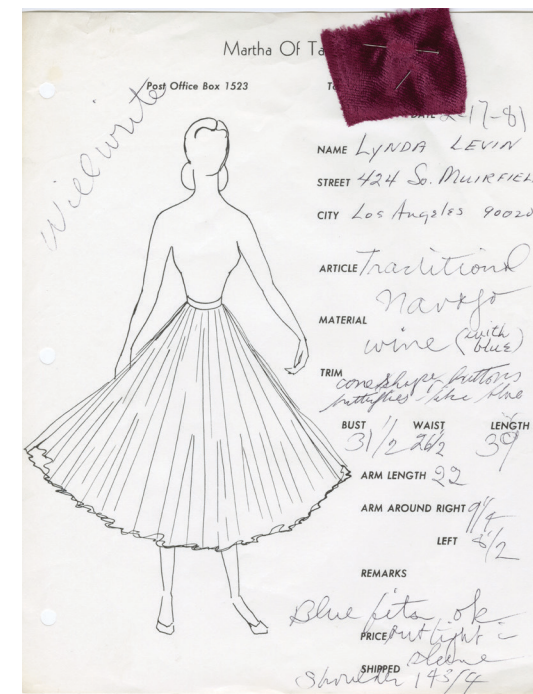 Martha Of Ta
Post Office Box 1523
Will write
DATE 2-17-81
NAME LYNDA LEVIN
STREET 424 So. MUIRFIEL
CITY Los Angeles 90020
ARTICLE Traditional
Navajo
MATERIAL
wine (with
blue)
TRIM
cone shape buttons
butterflies like blue
BUST WAIST LENGTH
31 1/2 26 1/2 39
ARM LENGTH 22
ARM AROUND RIGHT 9 1/4
LEFT 8 1/2
REMARKS
Blue fits ok
PRICE but tight
SHIPPED
Shoulder 14 3/4